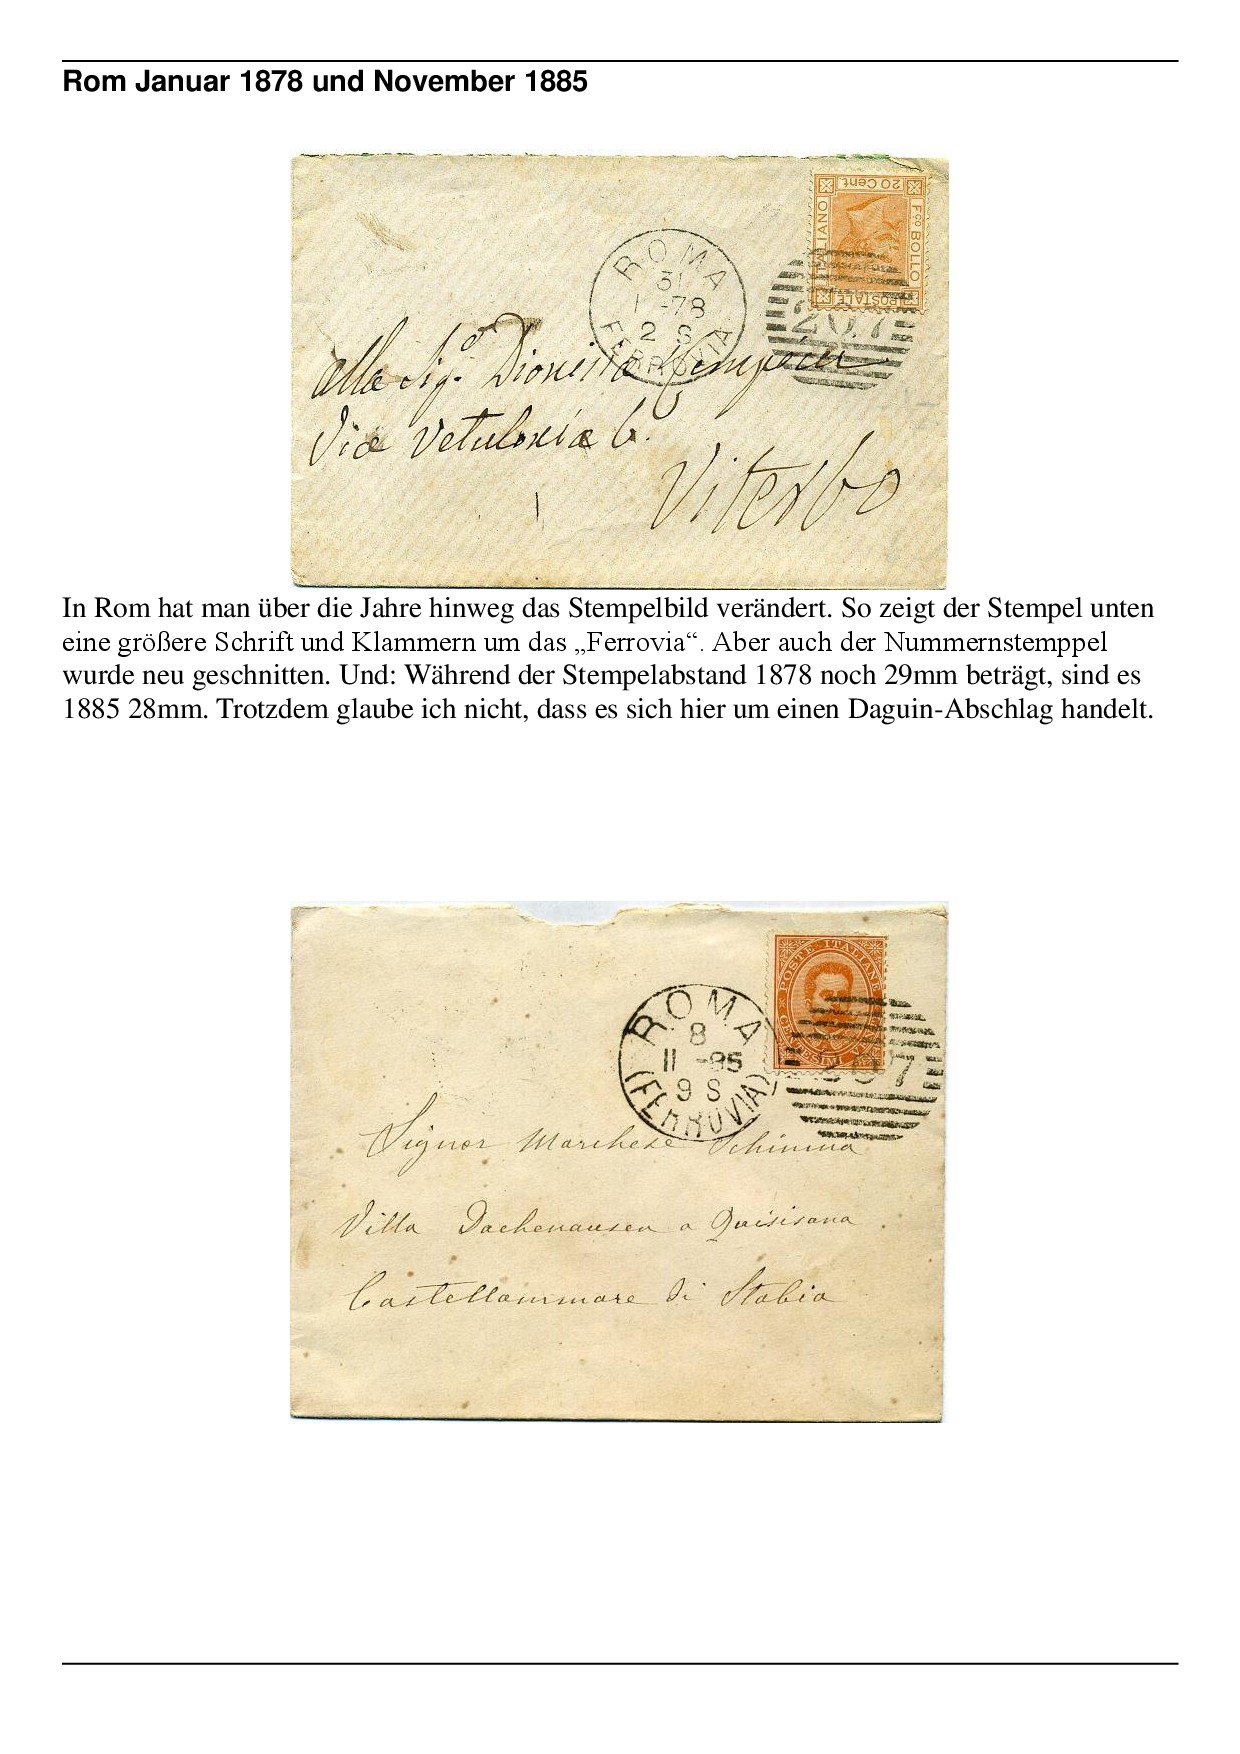 Rom Januar 1878 und November 1885
20 Cent.
Fco BOLLO
POSTALE
ITALIANO
ROMA
31
1 -78
2 S
FERROVIA
207
alla Sig.a Dionisia
Via Vetulonia 6.
Viterbo
In Rom hat man über die Jahre hinweg das Stempelbild verändert. So zeigt der Stempel unten
eine größere Schrift und Klammern um das „Ferrovia“. Aber auch der Nummernstemppel
wurde neu geschnitten. Und: Während der Stempelabstand 1878 noch 29mm beträgt, sind es
1885 28mm. Trotzdem glaube ich nicht, dass es sich hier um einen Daguin-Abschlag handelt.
POSTE ITALIANE
ROMA
8
11 -85
9 S
(FERROVIA)
Signor Marchese Schinina
Villa Dachenausen a Quisisana
Castellammare di Stabia